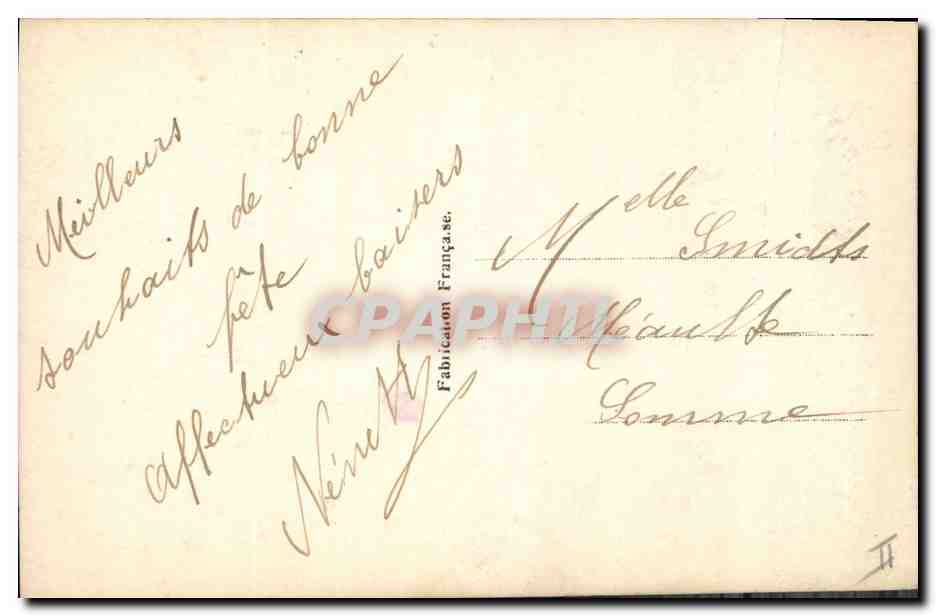 Meilleurs
souhaits de bonne
fête
Affectueux baisers
Fabrication Française.
Melle
Smidts
Méaulte
Somme
CPAPHIL
II